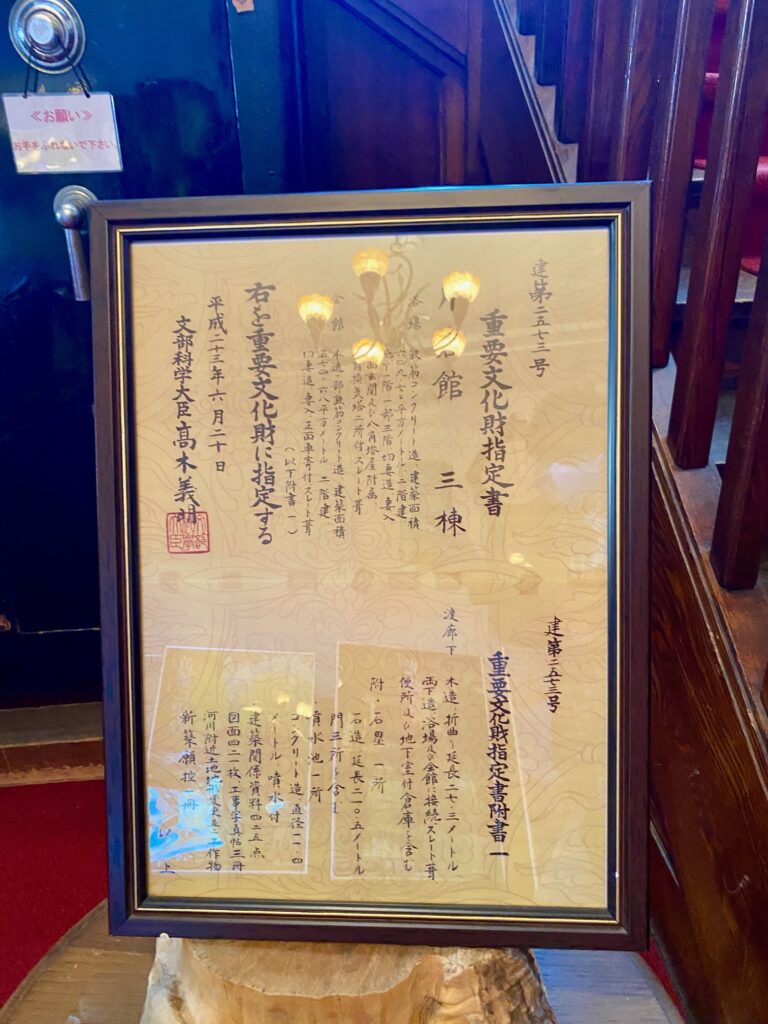 ≪お願い≫
お手をふれないで下さい。
建第二五七三号
重要文化財指定書
館 三棟
浴場 鉄筋コンクリート造、建築面積
六四九・七〇平方メートル、二階建
地下一階一部三階、切妻造、妻入
正面玄関及び八角塔屋附属
八角換気塔二所付、スレート葺
会館 木造一部鉄筋コンクリート造、建築面積
五七四・六八平方メートル、二階建
切妻造、妻入、正面車寄付、スレート葺
(以下附書一)
右を重要文化財に指定する
平成二十三年六月二十日
文部科学大臣 髙木義明
建第二五七三号
重要文化財指定書附書一
渡廊下 木造、折曲り延長二七・三メートル、
両下造、浴場及び会館に接続、スレート葺
便所及び地下室付倉庫を含む
附・石塁 一所
石造、延長二一〇・五メートル
門三所を含む
・噴水池一所
コンクリート造、直径一一・四
メートル、噴水付
・建築関係資料四二五点
図面四二一枚、工事写真帖三冊
新築願控一冊
以上